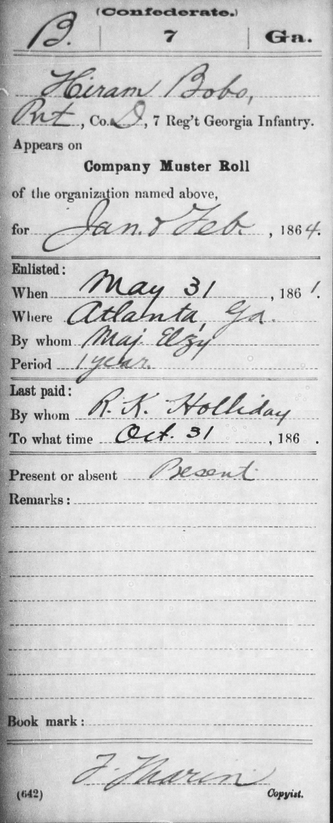 (Confederate.)
B. | 7 | Ga.
Hiram Bobo,
Pvt., Co. D, 7 Reg't Georgia Infantry.
Appears on
Company Muster Roll
of the organization named above,
for Jan. & Feb., 1864.
Enlisted:
When May 31, 1861.
Where Atlanta, Ga.
By whom Maj. Elzy
Period 1 year.
Last paid:
By whom R. K. Holliday
To what time Oct. 31, 186 .
Present or absent Present
Remarks:
Book mark:
(642) Copyist.